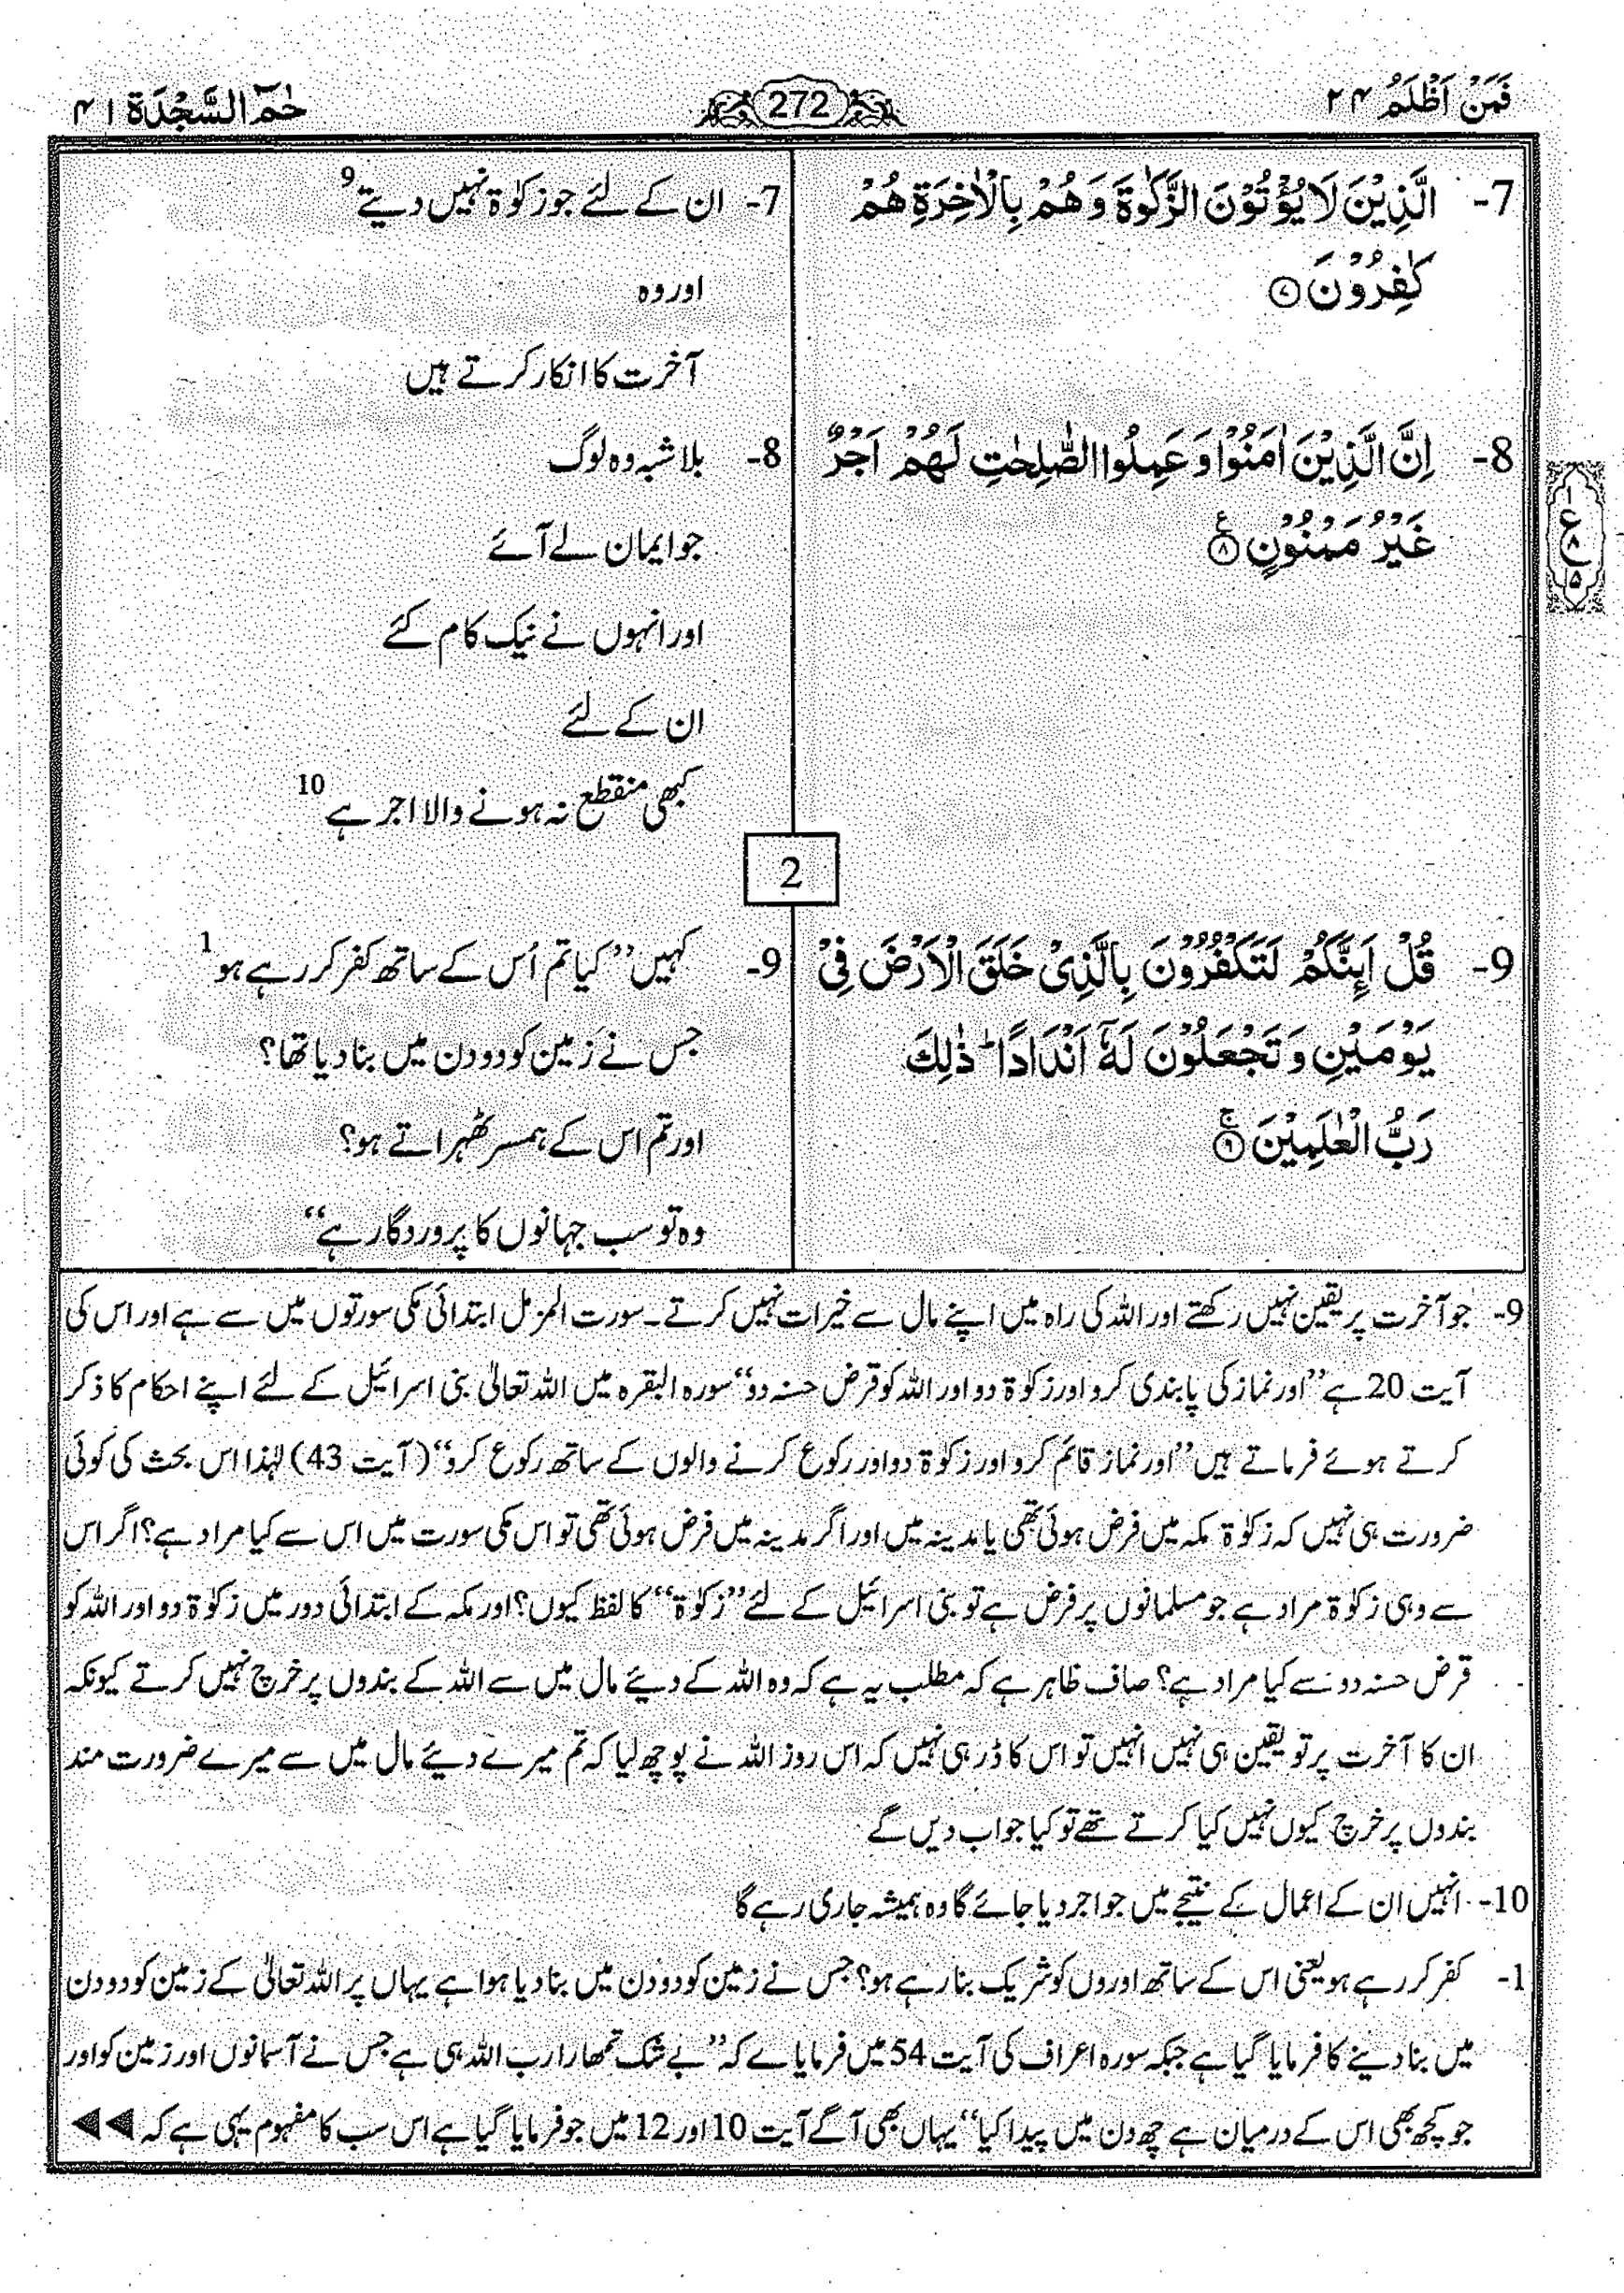 فَمَنْ اَظْلَمُ ۲۴
272
حٰمٓ السَّجْدَة ۴۱
7- الَّذِیْنَ لَا یُؤْتُوْنَ الزَّكٰوةَ وَ هُمْ بِالْاٰخِرَةِ هُمْ
كٰفِرُوْنَ ﴿۷﴾
7- ان کے لئے جو زکوٰۃ نہیں دیتے 9
اور وہ
آخرت کا انکار کرتے ہیں
8- اِنَّ الَّذِیْنَ اٰمَنُوْا وَ عَمِلُوا الصّٰلِحٰتِ لَهُمْ اَجْرٌ
غَیْرُ مَمْنُوْنٍ ﴿۸﴾ ع
۱
ع
۸
۱۵
8- بلاشبہ وہ لوگ
جو ایمان لے آئے
اور انہوں نے نیک کام کئے
ان کے لئے
کبھی منقطع نہ ہونے والا اجر ہے 10
2
9- قُلْ اَىِٕنَّكُمْ لَتَكْفُرُوْنَ بِالَّذِیْ خَلَقَ الْاَرْضَ فِیْ
یَوْمَیْنِ وَ تَجْعَلُوْنَ لَهٗۤ اَنْدَادًا ؕ ذٰلِكَ
رَبُّ الْعٰلَمِیْنَ ﴿۹﴾ ج
9- کہیں ’’کیا تم اُس کے ساتھ کفر کر رہے ہو 1
جس نے زمین کو دو دن میں بنا دیا تھا؟
اور تم اس کے ہمسر ٹھہراتے ہو؟
وہ تو سب جہانوں کا پروردگار ہے‘‘
9- جو آخرت پر یقین نہیں رکھتے اور اللہ کی راہ میں اپنے مال سے خیرات نہیں کرتے۔ سورت المزمل ابتدائی مکی سورتوں میں سے ہے اور اس کی
آیت 20 ہے ’’اور نماز کی پابندی کرو اور زکوٰۃ دو اور اللہ کو قرض حسنہ دو‘‘ سورہ البقرہ میں اللہ تعالیٰ بنی اسرائیل کے لئے اپنے احکام کا ذکر
کرتے ہوئے فرماتے ہیں ’’اور نماز قائم کرو اور زکوٰۃ دو اور رکوع کرنے والوں کے ساتھ رکوع کرو‘‘ (آیت 43) لہٰذا اس بحث کی کوئی
ضرورت ہی نہیں کہ زکوٰۃ مکہ میں فرض ہوئی تھی یا مدینہ میں اور اگر مدینہ میں فرض ہوئی تھی تو اس مکی سورت میں اس سے کیا مراد ہے؟ اگر اس
سے وہی زکوٰۃ مراد ہے جو مسلمانوں پر فرض ہے تو بنی اسرائیل کے لئے ’’زکوٰۃ‘‘ کا لفظ کیوں؟ اور مکہ کے ابتدائی دور میں زکوٰۃ دو اور اللہ کو
قرض حسنہ دو سے کیا مراد ہے؟ صاف ظاہر ہے کہ مطلب یہ ہے کہ وہ اللہ کے دیئے مال میں سے اللہ کے بندوں پر خرچ نہیں کرتے کیونکہ
ان کا آخرت پر تو یقین ہی نہیں انہیں تو اس کا ڈر ہی نہیں کہ اس روز اللہ نے پوچھ لیا کہ تم میرے دیئے مال میں سے میرے ضرورت مند
بندوں پر خرچ کیوں نہیں کیا کرتے تھے تو کیا جواب دیں گے
10- انہیں ان کے اعمال کے نتیجے میں جو اجر دیا جائے گا وہ ہمیشہ جاری رہے گا
1- کفر کر رہے ہو یعنی اس کے ساتھ اوروں کو شریک بنا رہے ہو؟ جس نے زمین کو دو دن میں بنا دیا ہوا ہے یہاں پر اللہ تعالیٰ کے زمین کو دو دن
میں بنا دینے کا فرمایا گیا ہے جبکہ سورہ اعراف کی آیت 54 میں فرمایا ہے کہ ’’بے شک تمھارا رب اللہ ہی ہے جس نے آسمانوں اور زمین کو اور
جو کچھ بھی اس کے درمیان ہے چھ دن میں پیدا کیا‘‘ یہاں بھی آگے آیت 10 اور 12 میں جو فرمایا گیا ہے اس سب کا مفہوم یہی ہے کہ ◄◄